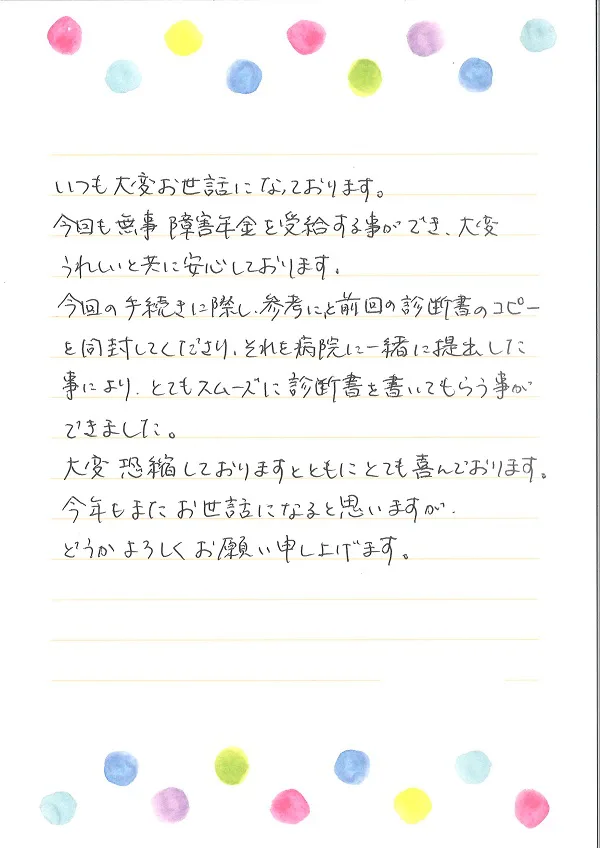 いつも大変お世話になっております。
今回も無事障害年金を受給する事ができ、大変
うれしいと共に安心しております。
今回の手続きに際し、参考にと前回の診断書のコピー
を同封してくださり、それを病院に一緒に提出した
事により、とてもスムーズに診断書を書いてもらう事が
できました。
大変恐縮しておりますとともにとても喜んでおります。
今年もまたお世話になると思いますが、
どうかよろしくお願い申し上げます。